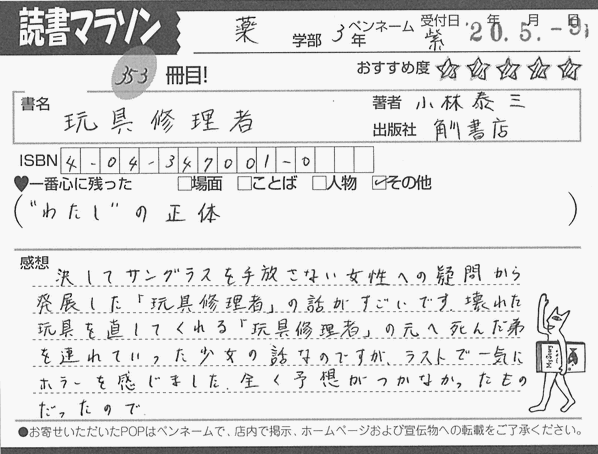 読書マラソン
薬 学部 3年 ペンネーム 紫 受付日 年 月 日
20.5.-9
353 冊目!
おすすめ度 ☆☆☆☆☆
書名 玩具修理者
著者 小林泰三
出版社 角川書店
ISBN 4-04-347001-0
♥一番心に残った □場面 □ことば □人物 ☑その他
("わたし"の正体)
感想
決してサングラスを手放さない女性への疑問から
発展した「玩具修理者」の話がすごいです.壊れた
玩具を直してくれる「玩具修理者」の元へ死んだ弟
を連れていった少女の話なのですが、ラストで一気に
ホラーを感じました.全く予想がつかなかったもの
だったので.
●お寄せいただいたPOPはペンネームで、店内で掲示、ホームページおよび宣伝物への転載をご了承ください。